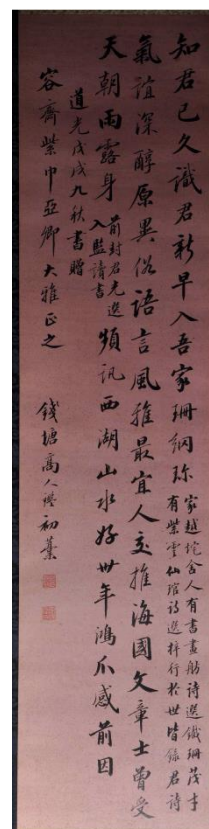 知君已久識君新早入吾家珊網珎家越垞舍人有書畫舫詩選鐵珊茂才
有紫雲仙琯詩選梓行於世皆錄君詩
氣誼深醇原異俗語言風雅最宜人交推海國文章士曾受
天朝雨露身前封君充選
入監讀書頻訊西湖山水好卅年鴻爪感前因
道光戊戌九秋書贈
容齋紫巾亞卿大雅正之
錢塘高人鑑初藁